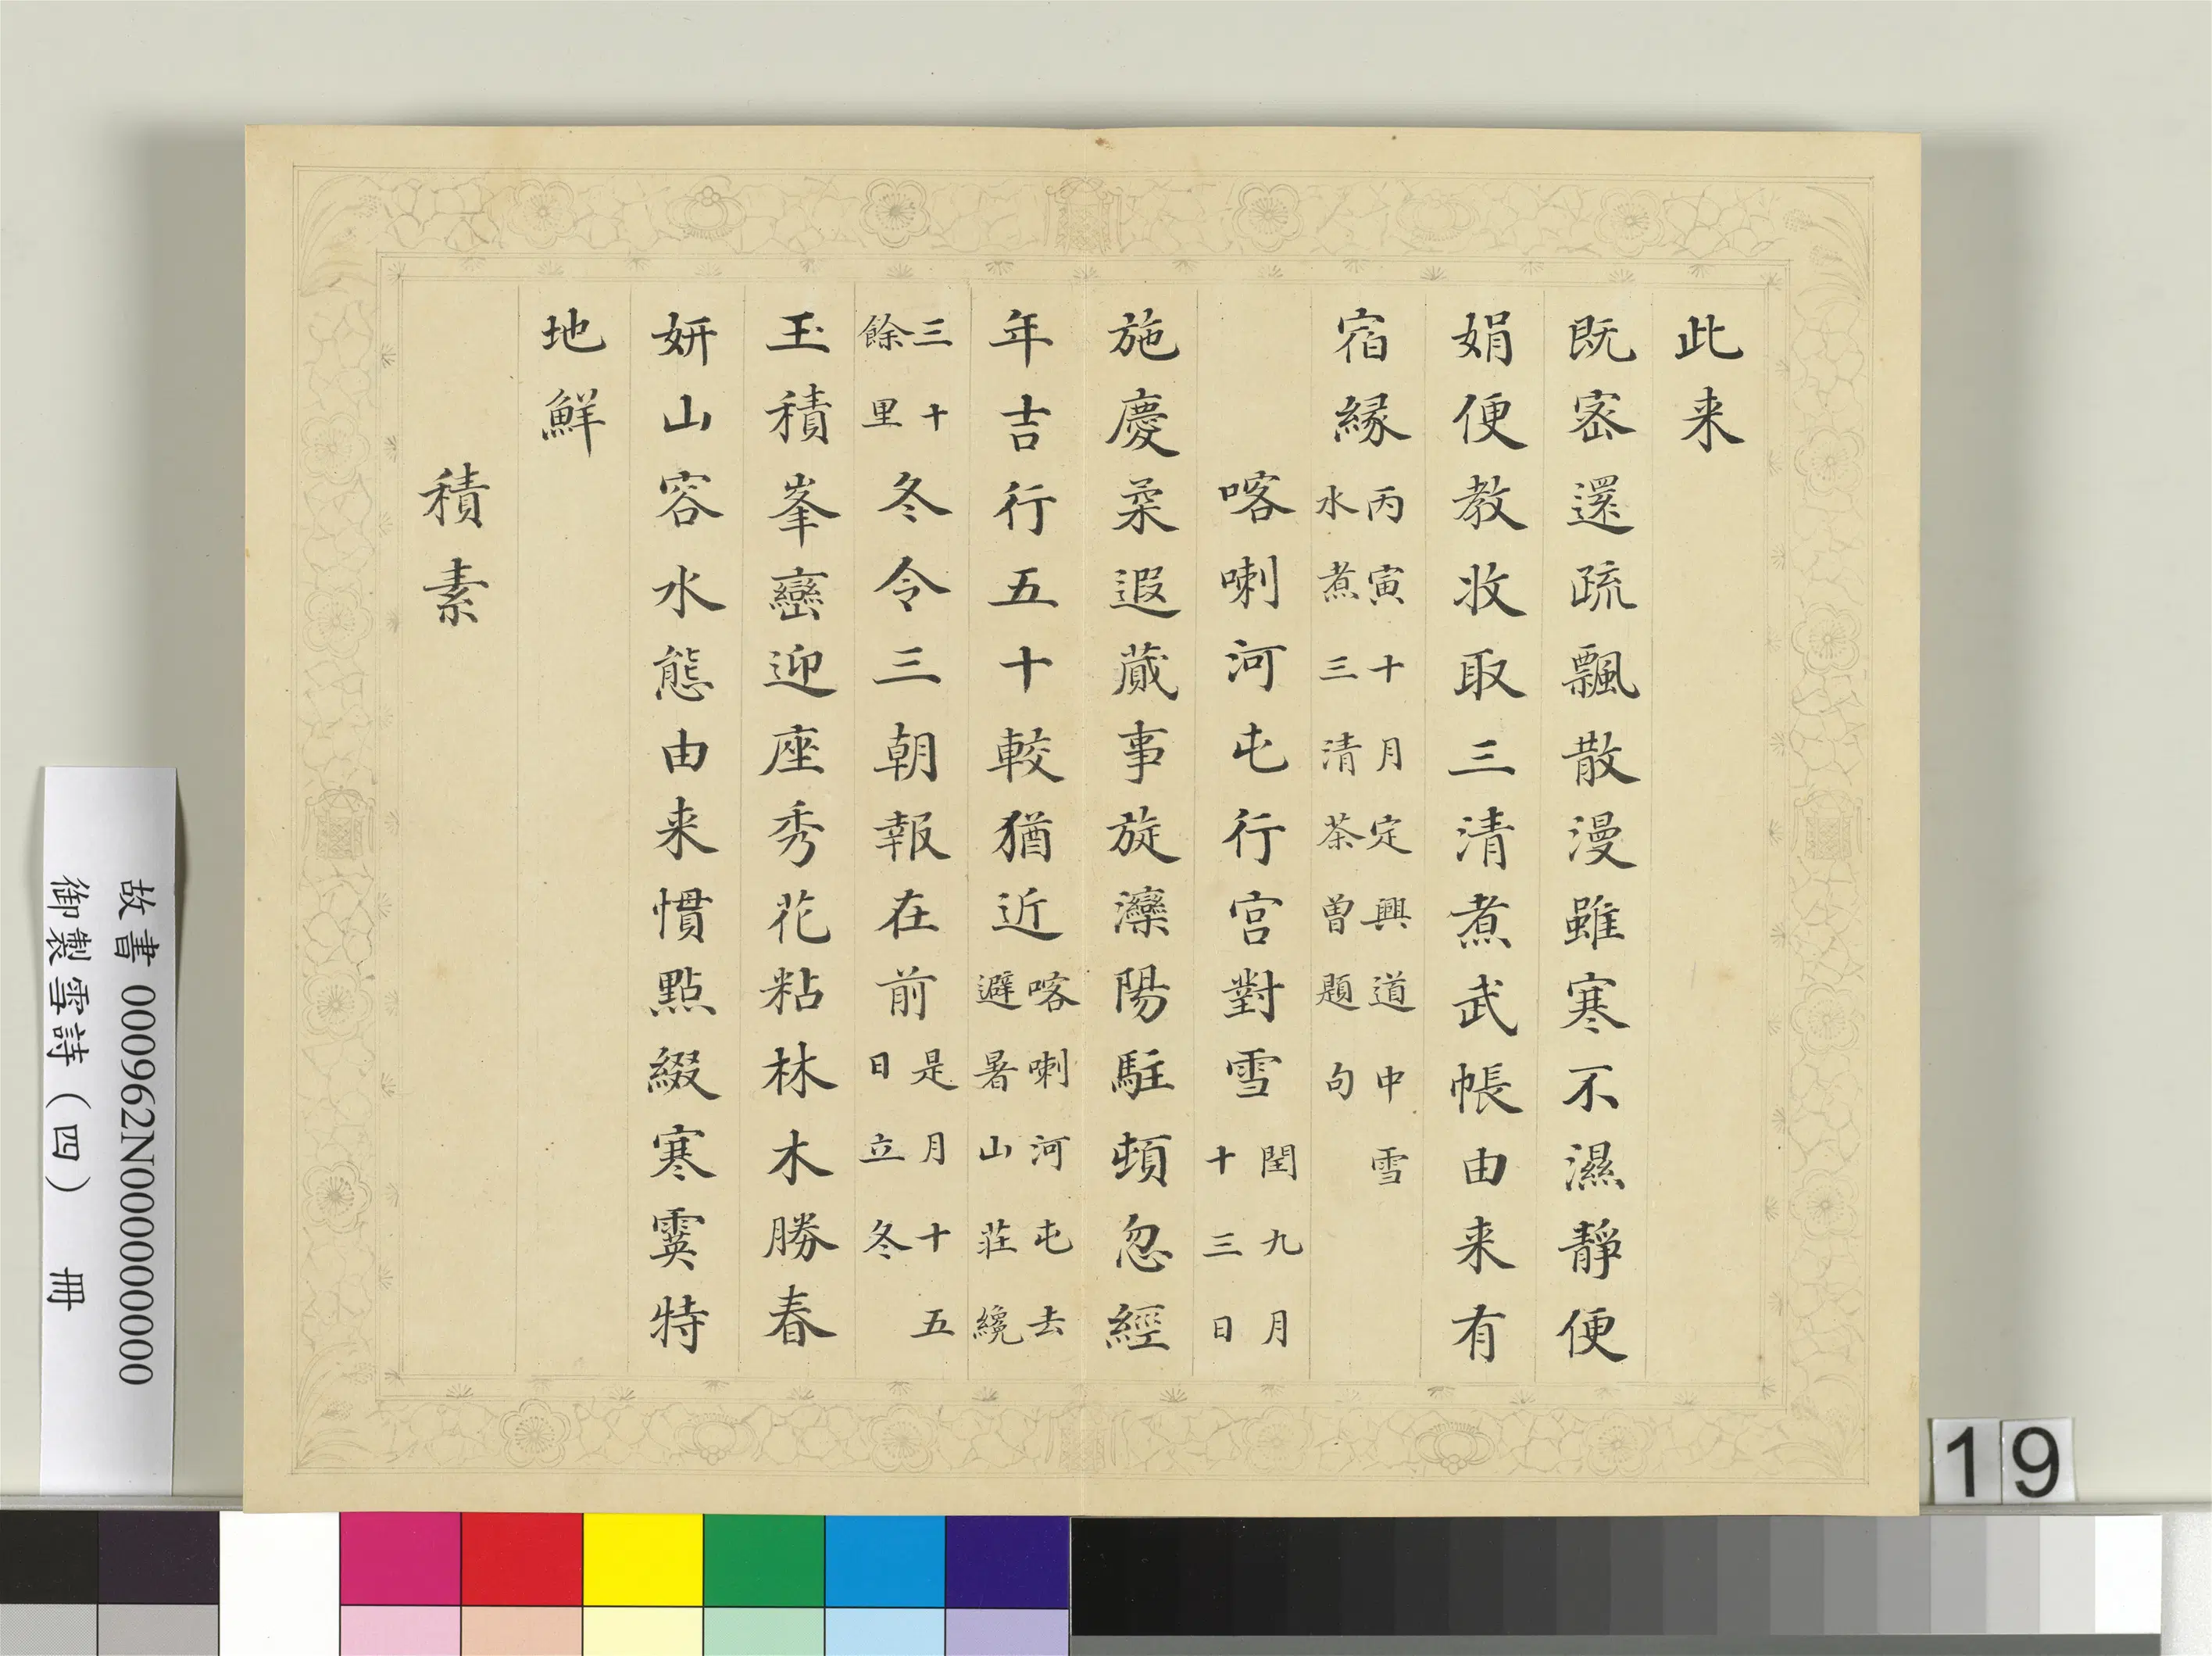 此来
既密還疏飄散漫雖寒不濕靜便
娟便教收取三清煮武帳由来有
宿緣丙寅十月定興道中雪
水煮三清茶曾題句
喀喇河屯行宮對雪閏九月
十三日
施慶柔遐蕆事旋灤陽駐頓忽經
年吉行五十較猶近喀喇河屯去
避暑山莊纔
三十
餘里冬令三朝報在前是月十五
日立冬
玉積峯巒迎座秀花粘林木勝春
妍山容水態由来慣點綴寒霙特
地鮮
積素
故書 000962N000000000
御製雪詩（四） 冊
19